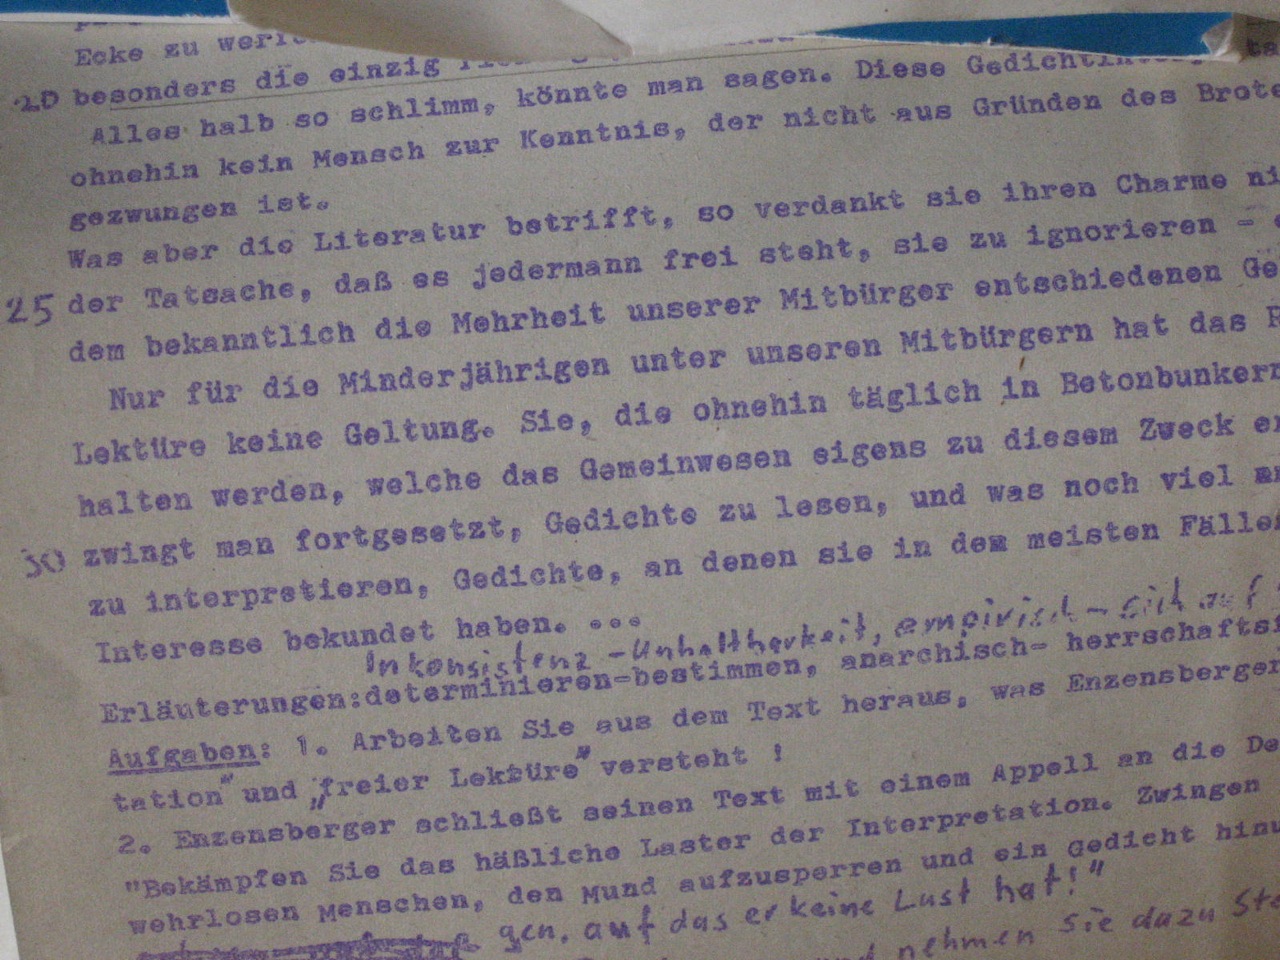 Ecke zu
20 besonders die einzig
Alles halb so schlimm, könnte man sagen. Diese
ohnehin kein Mensch zur Kenntnis, der nicht aus Gründen des Brote
gezwungen ist.
Was aber die Literatur betrifft, so verdankt sie ihren Charme ni
25 der Tatsache, daß es jedermann frei steht, sie zu ignorieren -
dem bekanntlich die Mehrheit unserer Mitbürger entschiedenen Ge
Nur für die Minderjährigen unter unseren Mitbürgern hat das R
Lektüre keine Geltung. Sie, die ohnehin täglich in Betonbunkern
halten werden, welche das Gemeinwesen eigens zu diesem Zweck er
30 zwingt man fortgesetzt, Gedichte zu lesen, und was noch viel
zu interpretieren, Gedichte, an denen sie in dem meisten Fällen
Interesse bekundet haben. ...
Inkonsistenz - Unhaltbarkeit, empirisch - sich auf
Erläuterungen: determinieren=bestimmen, anarchisch= herrschafts
Aufgaben: 1. Arbeiten Sie aus dem Text heraus, was Enzensberger
tation" und „freier Lektüre" versteht !
2. Enzensberger schließt seinen Text mit einem Appell an die De
"Bekämpfen Sie das häßliche Laster der Interpretation. Zwingen
wehrlosen Menschen, den Mund aufzusperren und ein Gedicht hinu
gen, auf das er keine Lust hat!"
nehmen Sie dazu Ste